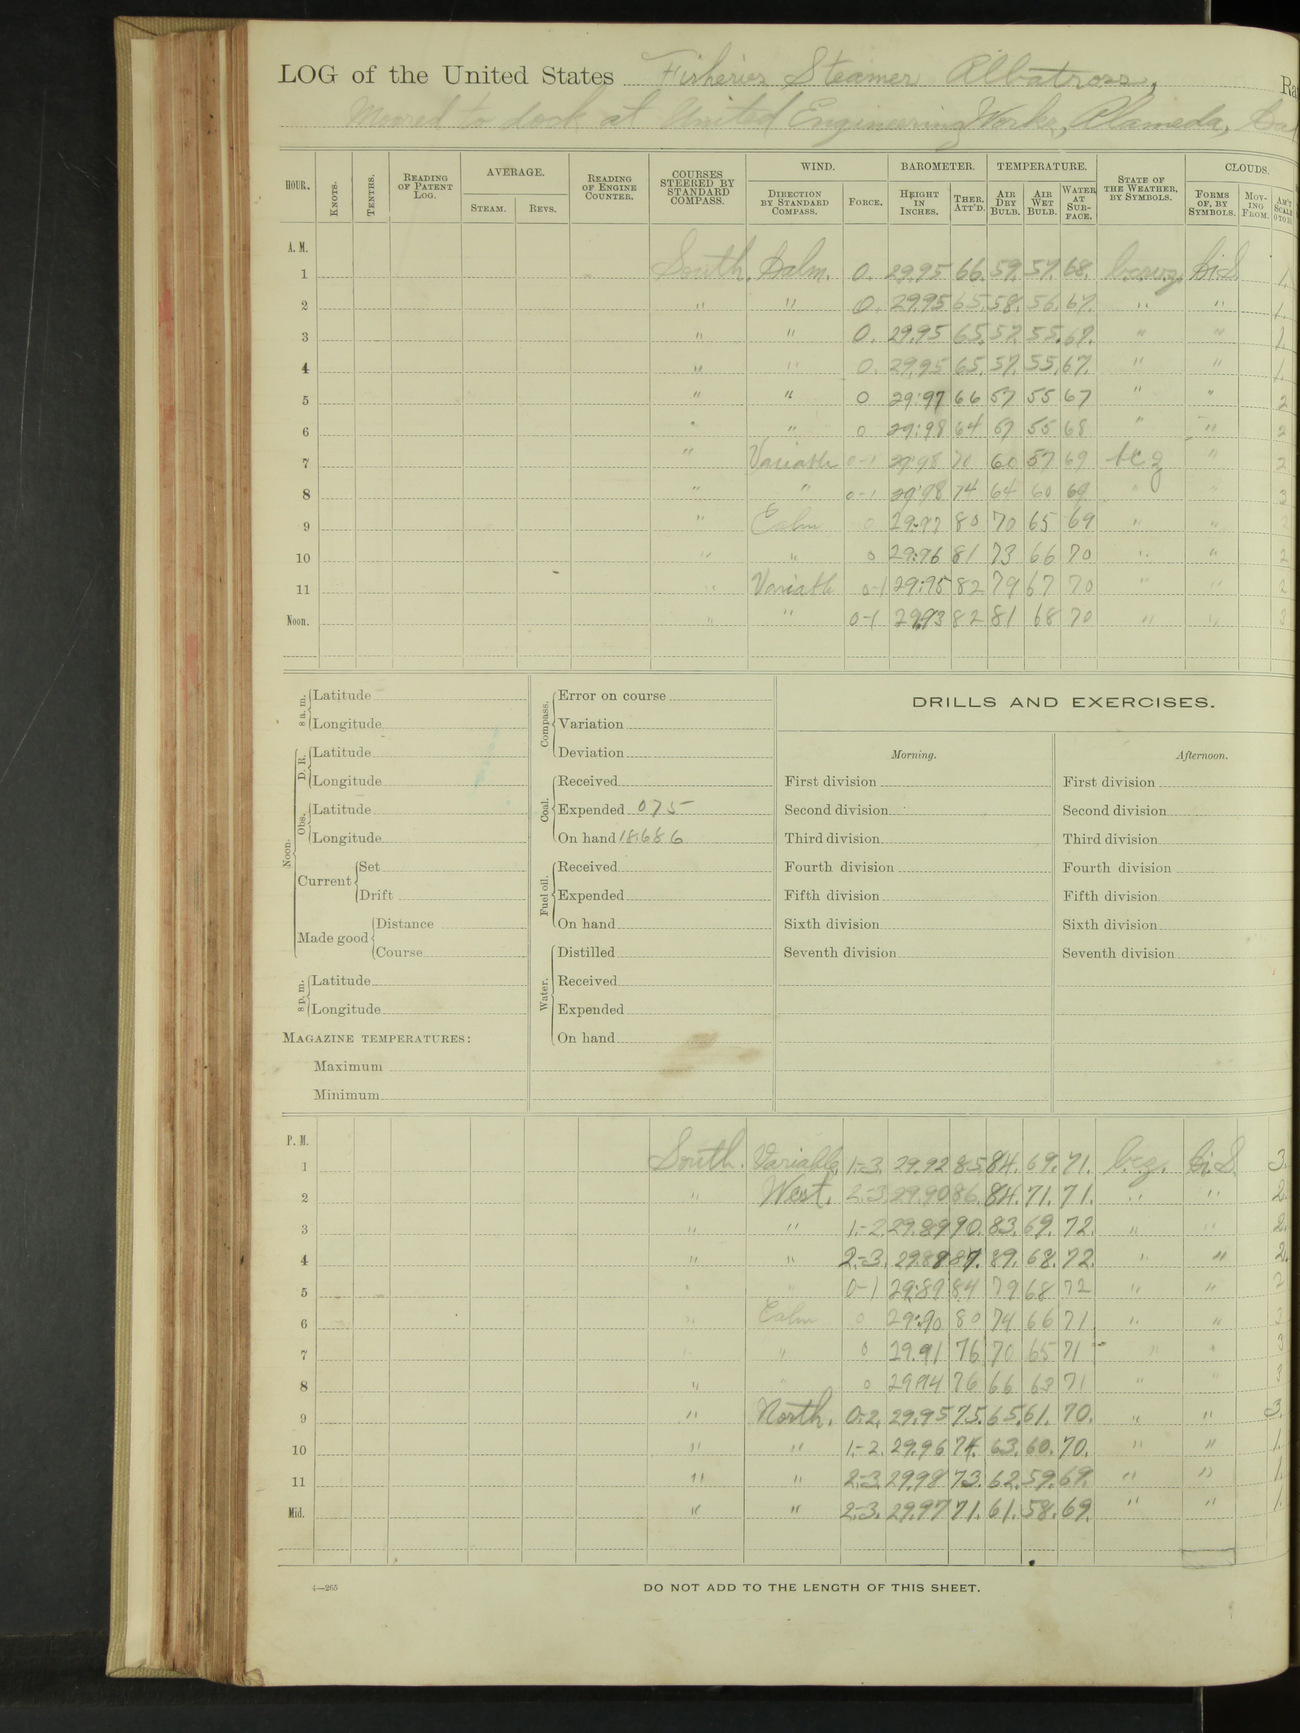 LOG of the United States Fisheries Steamer Albatross, Ra
Moored to dock at United Engineering Works, Alameda, Cal
HOUR. KNOTS. TENTHS. READING OF PATENT LOG. AVERAGE. STEAM. REVS. READING OF ENGINE COUNTER. COURSES STEERED BY STANDARD COMPASS. WIND. DIRECTION BY STANDARD COMPASS. FORCE. BAROMETER. HEIGHT IN INCHES. THER. ATT'D. TEMPERATURE. AIR DRY BULB. AIR WET BULB. WATER AT SURFACE. STATE OF THE WEATHER, BY SYMBOLS. CLOUDS. FORMS OF, BY SYMBOLS. MOVING FROM. AM'T SCALE 0 TO 10.
A. M.
1 South. Calm. 0. 29.95 66. 59. 57. 68. Ci.S. 1.
2 " " 0. 29.95 65. 58. 56. 67. " " 1.
3 " " 0. 29.95 65. 57. 55. 67. " " 1.
4 " " 0. 29.95 65. 57. 55. 67. " " 1.
5 " " 0 29.97 66 57 55 67 " " 2
6 " " 0 29.98 64 57 55 68 " " 2
7 " Variable 0-1 29.98 70 60 57 69 bcz " 2
8 " " 0-1 29.98 74 64 60 69 " " 3
9 " Calm 0 29.97 80 70 65 69 " "
10 " " 0 29.96 81 73 66 70 " " 2
11 " Variable 0-1 29.95 82 79 67 70 " " 2
Noon. " " 0-1 29.93 82 81 68 70 " " 3
8 a. m. Latitude
Longitude
Noon. D. R. Latitude
Longitude
Obs. Latitude
Longitude
Current Set
Drift
Made good Distance
Course
8 p. m. Latitude
Longitude
MAGAZINE TEMPERATURES:
Maximum
Minimum
Compass. Error on course
Variation
Deviation
Coal. Received
Expended 075
On hand 18.686
Fuel oil. Received
Expended
On hand
Water. Distilled
Received
Expended
On hand
DRILLS AND EXERCISES.
Morning. Afternoon.
First division First division
Second division Second division
Third division Third division
Fourth division Fourth division
Fifth division Fifth division
Sixth division Sixth division
Seventh division Seventh division
P. M.
1 South. Variable. 1-3. 29.92 85 84. 69. 71. bcz. Ci.S. 3.
2 " West. 2-3. 29.90 86. 84. 71. 71. " " 2.
3 " " 1-2. 29.89 90. 83. 69. 72. " " 2.
4 " " 2-3. 29.89 87. 89. 68. 72. " " 2.
5 " " 0-1 29.89 84 79 68 72 " " 2
6 " Calm 0 29.90 80 74 66 71 " " 3
7 " " 0 29.91 76 70 65 71 " " 3
8 " " 0 29.94 76 66 63 71 " " 3
9 " North. 0-2. 29.95 75. 65. 61. 70. " " 3.
10 " " 1-2. 29.96 74. 63. 60. 70. " " 1.
11 " " 2-3. 29.98 73. 62. 59. 69. " " 1.
Mid. " " 2-3. 29.97 71. 61. 58. 69. " " 1.
4—265 DO NOT ADD TO THE LENGTH OF THIS SHEET.